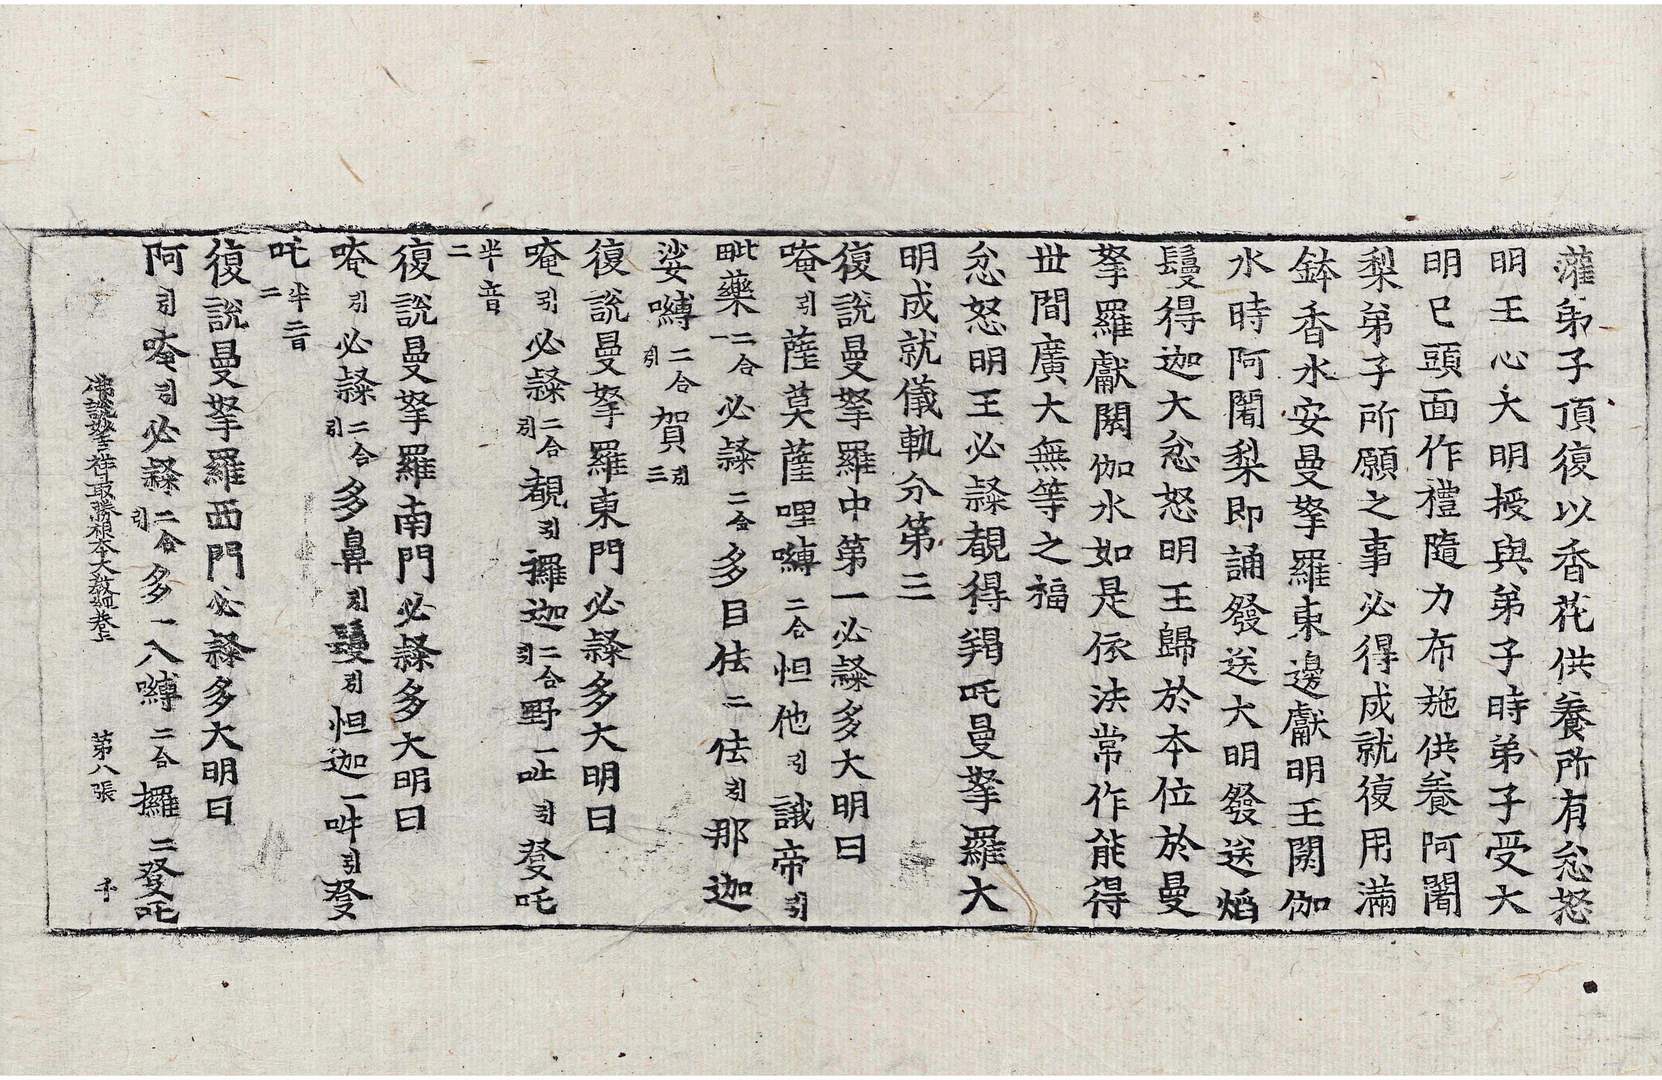 灌弟子頂復以香花供養所有忿怒
明王心大明授與弟子時弟子受大
明已頭面作禮隨力布施供養阿闍
梨弟子所願之事必得成就復用滿
鉢香水安曼拏羅東邊獻明王閼伽
水時阿闍梨即誦發送大明發送焰
鬘得迦大忿怒明王歸於本位於曼
拏羅獻閼伽水如是依法常作能得
世間廣大無等之福
忿怒明王必隷覩得羯吒曼拏羅大
明成就儀軌分第三
復說曼拏羅中第一必隷多大明曰
唵引薩莫薩哩嚩二合怛他引誐帝引
毗藥二合一必隷二合多目佉二佉引那迦
娑嚩二合引賀引三
復說曼拏羅東門必隷多大明曰
唵引必隷二合引覩引攞迦二合引野一吐引發吒
半音二
復說曼拏羅南門必隷多大明曰
唵引必隷二合引多鼻引鬘引怛迦一吽引發
吒半音二
復說曼拏羅西門必隷多大明曰
阿引唵引必隷二合引多一入嚩二合攞二發吒
佛說妙吉祥最勝根本大教經卷上 第八張 千